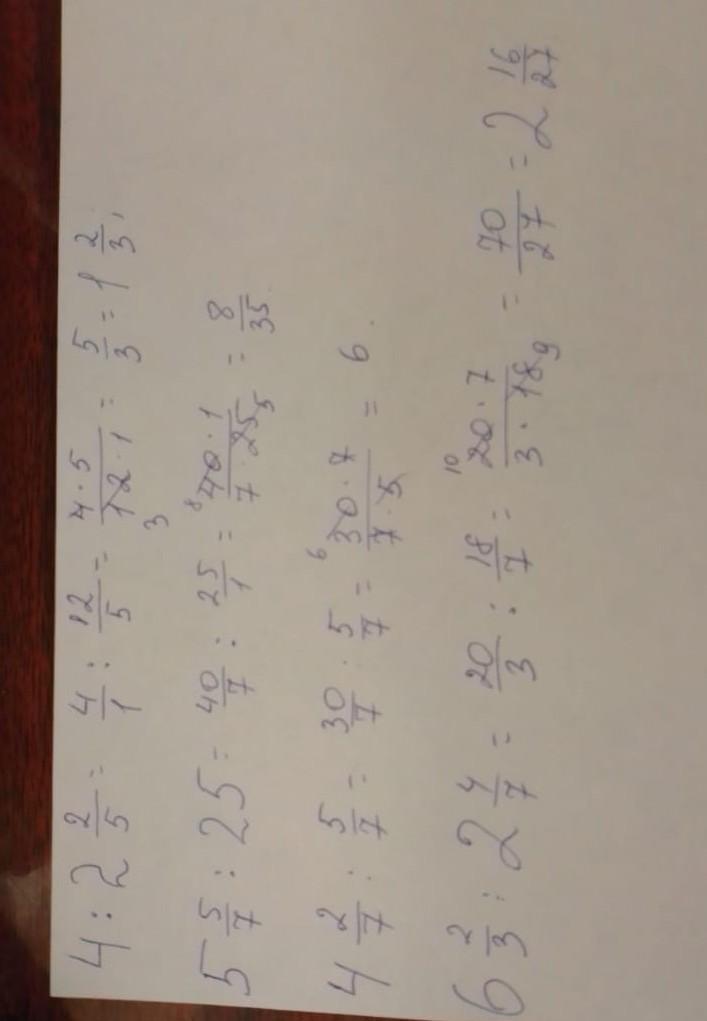 4 : 2 2/5 = 4/1 : 12/5 = 4·5/12·1 3 = 5/3 = 1 2/3,
5 5/7 : 25 = 40/7 : 25/1 = 8 40·1/7·25 5 = 8/35
4 2/7 : 5/7 = 30/7 · 5/7 = 6 30·7/7·5 = 6.
6 2/3 : 2 4/7 = 20/3 : 18/7 = 10 20·7/3·18 9 = 70/27 = 2 16/27